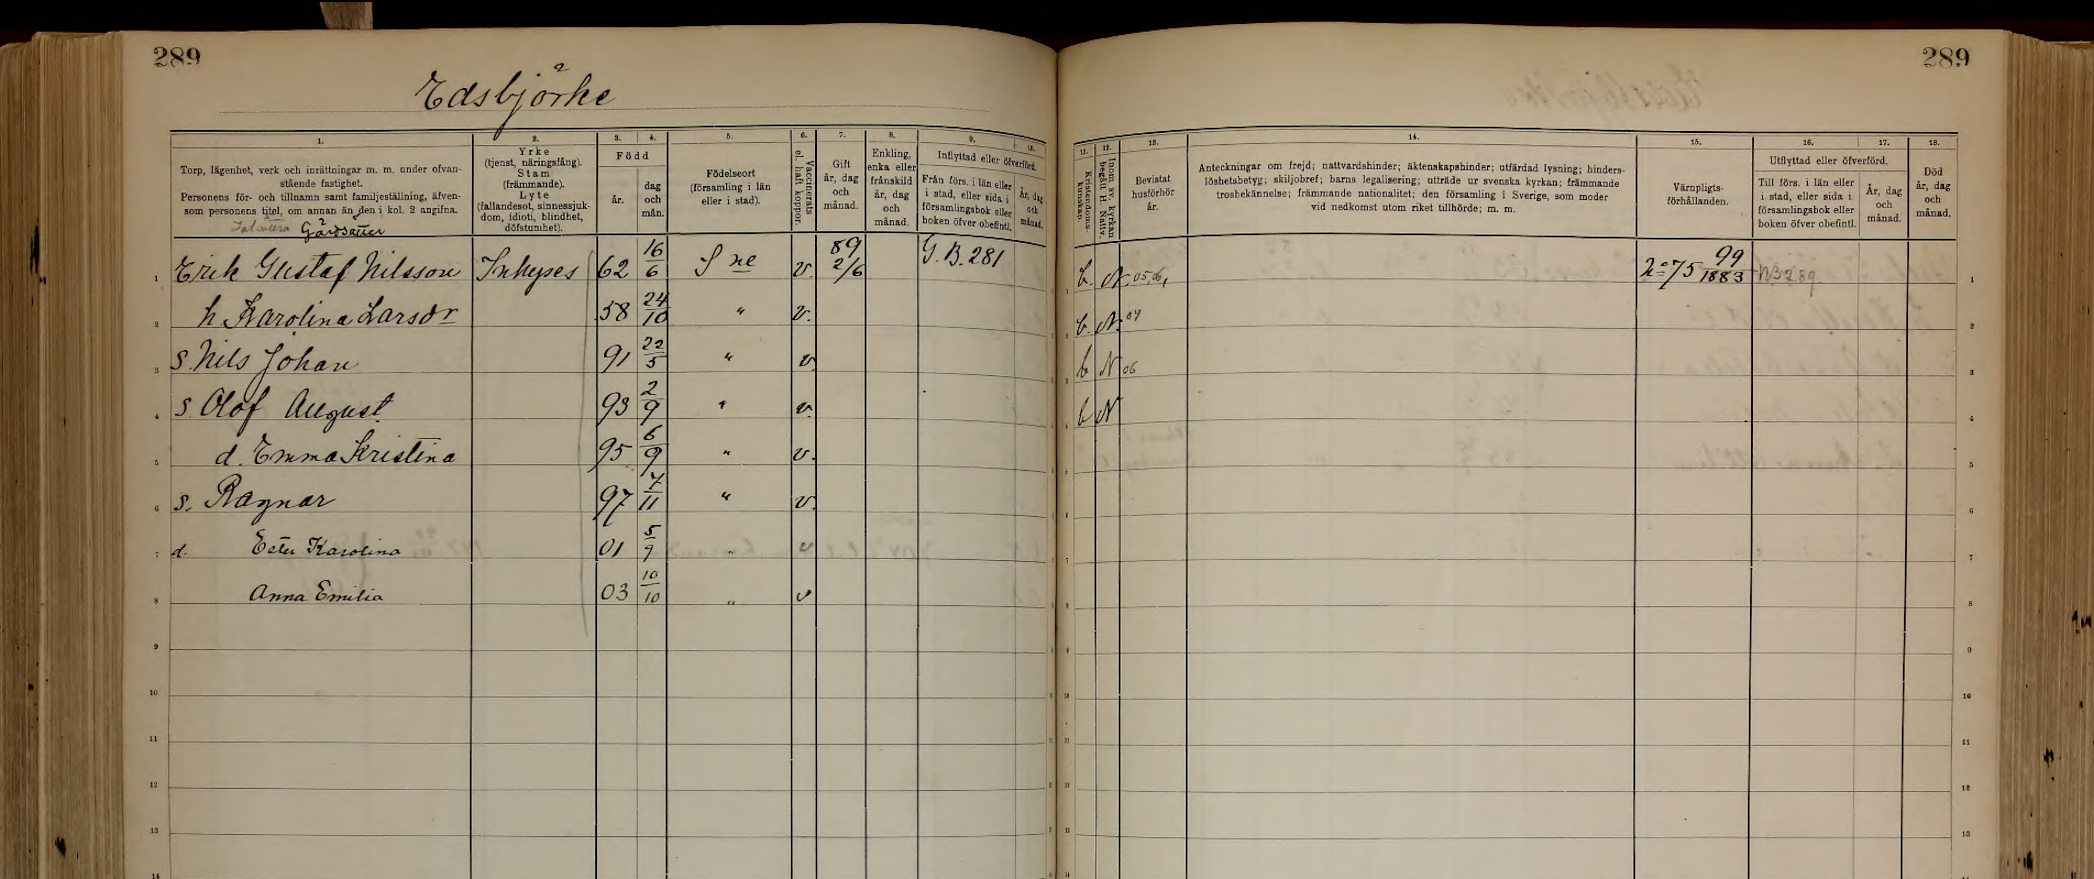 289
289
Edsbjörke
1.
Torp, lägenhet, verk och inrättningar m. m. under ofvan-
stående fastighet.
Personens för- och tillnamn samt familjeställning, äfven-
som personens titel, om annan än den i kol. 2 angifna.
Gårdsätter
2.
Yrke
(tjenst, näringsfång).
Stam
(främmande).
Lyte
(fallandesot, sinnessjuk-
dom, idioti, blindhet,
döfstumhet).
3. 4.
Född
år.
dag
och
mån.
5.
Födelseort
(församling i län
eller i stad).
6.
Vaccinerats
el. haft koppor.
7.
Gift
år, dag
och
månad.
8.
Enkling,
enka eller
frånskild
år, dag
och
månad.
9. 10.
Inflyttad eller öfverförd.
Från förs. i län eller
i stad, eller sida i
församlingsbok eller
boken öfver obefintl.
År, dag
och
månad.
11.
Kristendoms-
kunskap.
12.
Inom sv. kyrkan
begått H. Nattv.
13.
Bevistat
husförhör
år.
14.
Anteckningar om frejd; nattvardshinder; äktenskapshinder; utfärdad lysning; hinders-
löshetsbetyg; skiljobref; barns legalisering; utträde ur svenska kyrkan; främmande
trosbekännelse; främmande nationalitet; den församling i Sverige, som moder
vid nedkomst utom riket tillhörde; m. m.
15.
Värnpligts-
förhållanden.
16. 17.
Utflyttad eller öfverförd.
Till förs. i län eller
i stad, eller sida i
församlingsbok eller
boken öfver obefintl.
År, dag
och
månad.
18.
Död
år, dag
och
månad.
1 Erik Gustaf Nilsson Inhyses 62 16/6 S ne v. 89 2/6 G.B. 281 b. N. 05, 06, No 75 99/1883 NB 289 1
2 h. Karolina Larsdr 58 24/10 " v. b. N. 04 2
3 s. Nils Johan 91 22/5 " v. b N 06 3
4 s Olof August 93 2/9 " v. b N 4
5 d. Emma Kristina 95 6/9 " v. 5
6 s. Ragnar 97 7/11 " v. 6
7 d. Ester Karolina 01 5/9 " v 7
8 Anna Emilia 03 10/10 " v 8
9 9
10 10
11 11
12 12
13 13
14